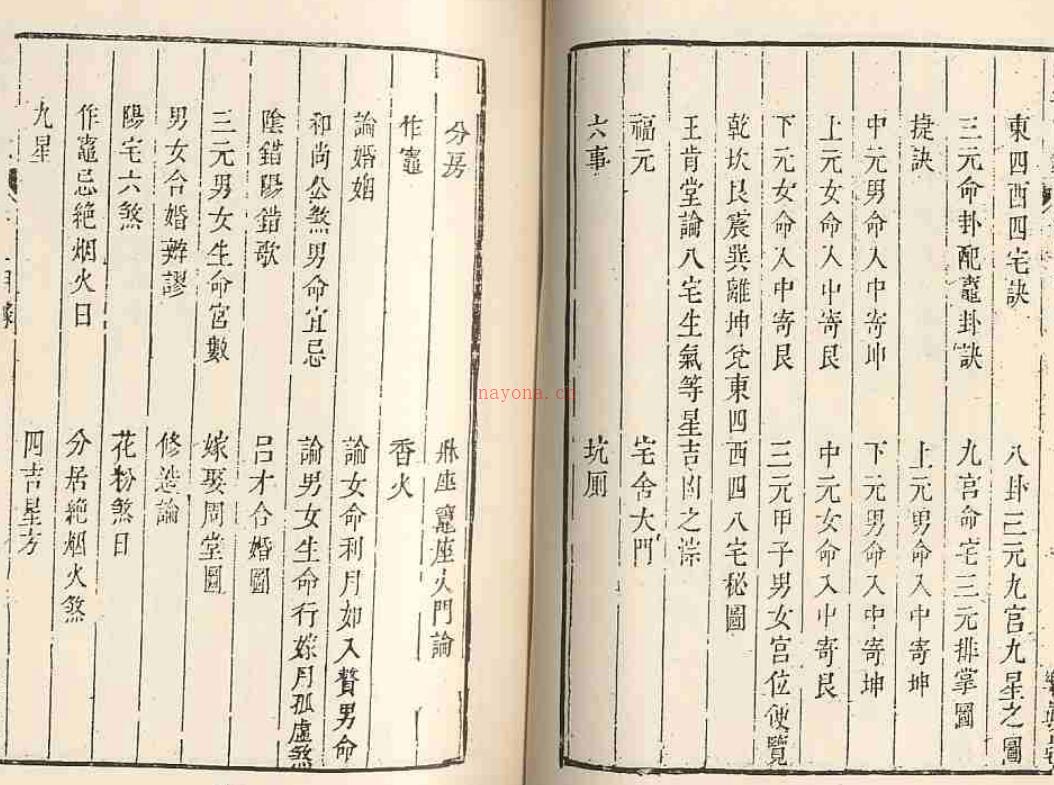 東四西四宅訣　八卦三元九宮九星之圖
三元命卦配竈卦訣　九宮命宅三元排掌圖
捷訣　上元男命入中寄坤
中元男命入中寄坤　下元男命入中寄坤
上元女命入中寄艮　中元女命入中寄艮
下元女命入中寄艮　三元甲子男女宮位便覽
乾坎艮震巽離坤兌東四西四八宅秘圖
王肯堂論八宅生氣等星吉凶之
福元　宅舍大門
六事　坑厠
分房　座竈座火門論
作竈　香火
論婚姻　論女命利月如入贅男命
和尚公煞男命宜忌　論男女生命行嫁月孤虛煞
陰錯陽錯歌　呂才合婚圖
三元男女生命宮數　嫁娶周堂圖
男女合婚辨謬　修造論
陽宅六煞　花粉煞日
作竈忌絕烟火日　分居絕烟火煞
九星　四吉星方
nayona.cn